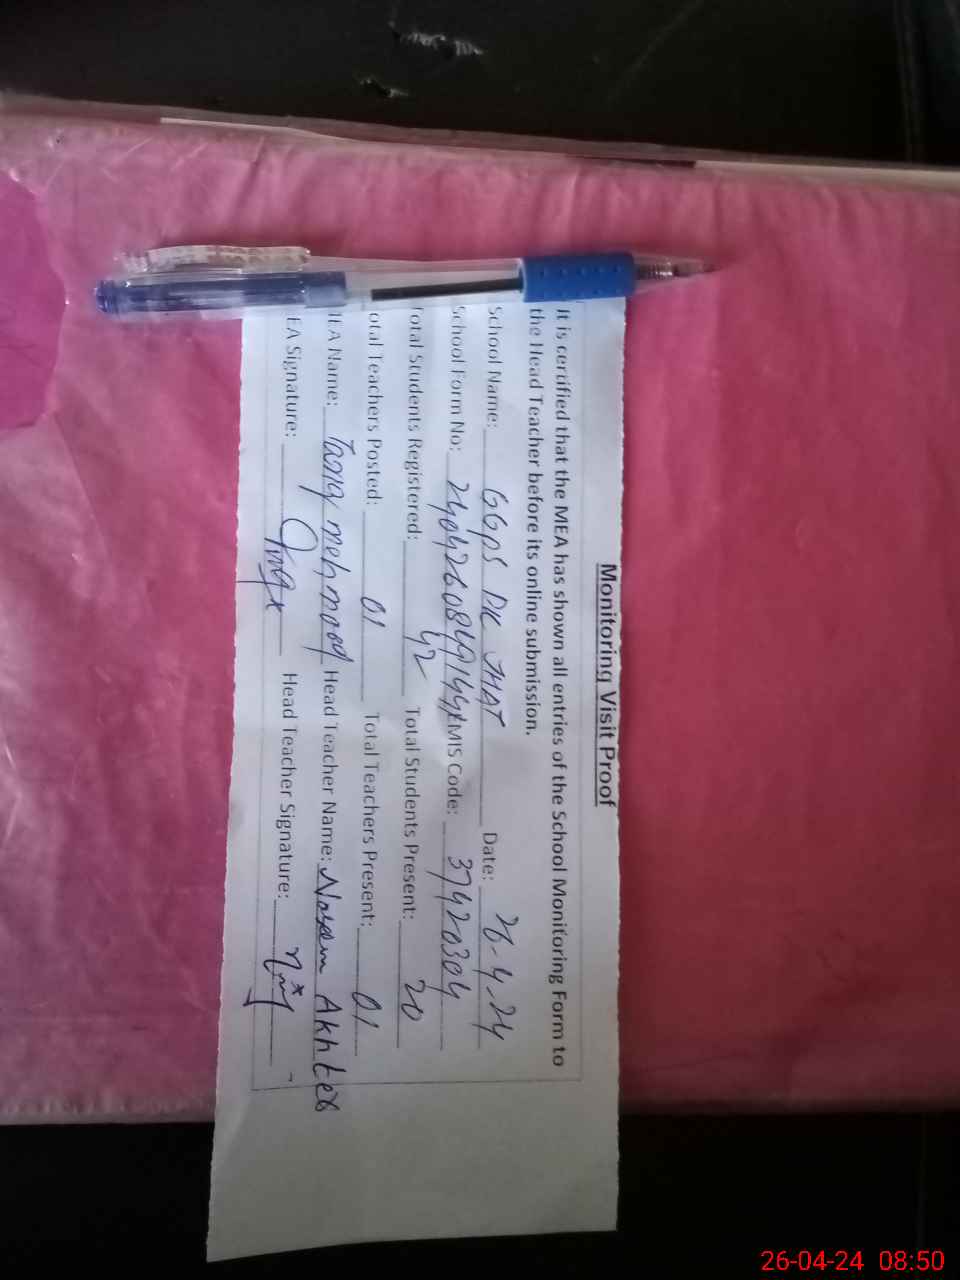 Monitoring Visit Proof
It is certified that the MEA has shown all entries of the School Monitoring Form to
the Head Teacher before its online submission.
School Name: GGPS DK JHAT Date: 26-4-24
School Form No: EMIS Code: 37420304
Total Students Registered: 42 Total Students Present: 20
otal Teachers Posted: 01 Total Teachers Present: 01
EA Name: mehmood Head Teacher Name: Naseem Akhter
EA Signature: Head Teacher Signature:
26-04-24 08:50